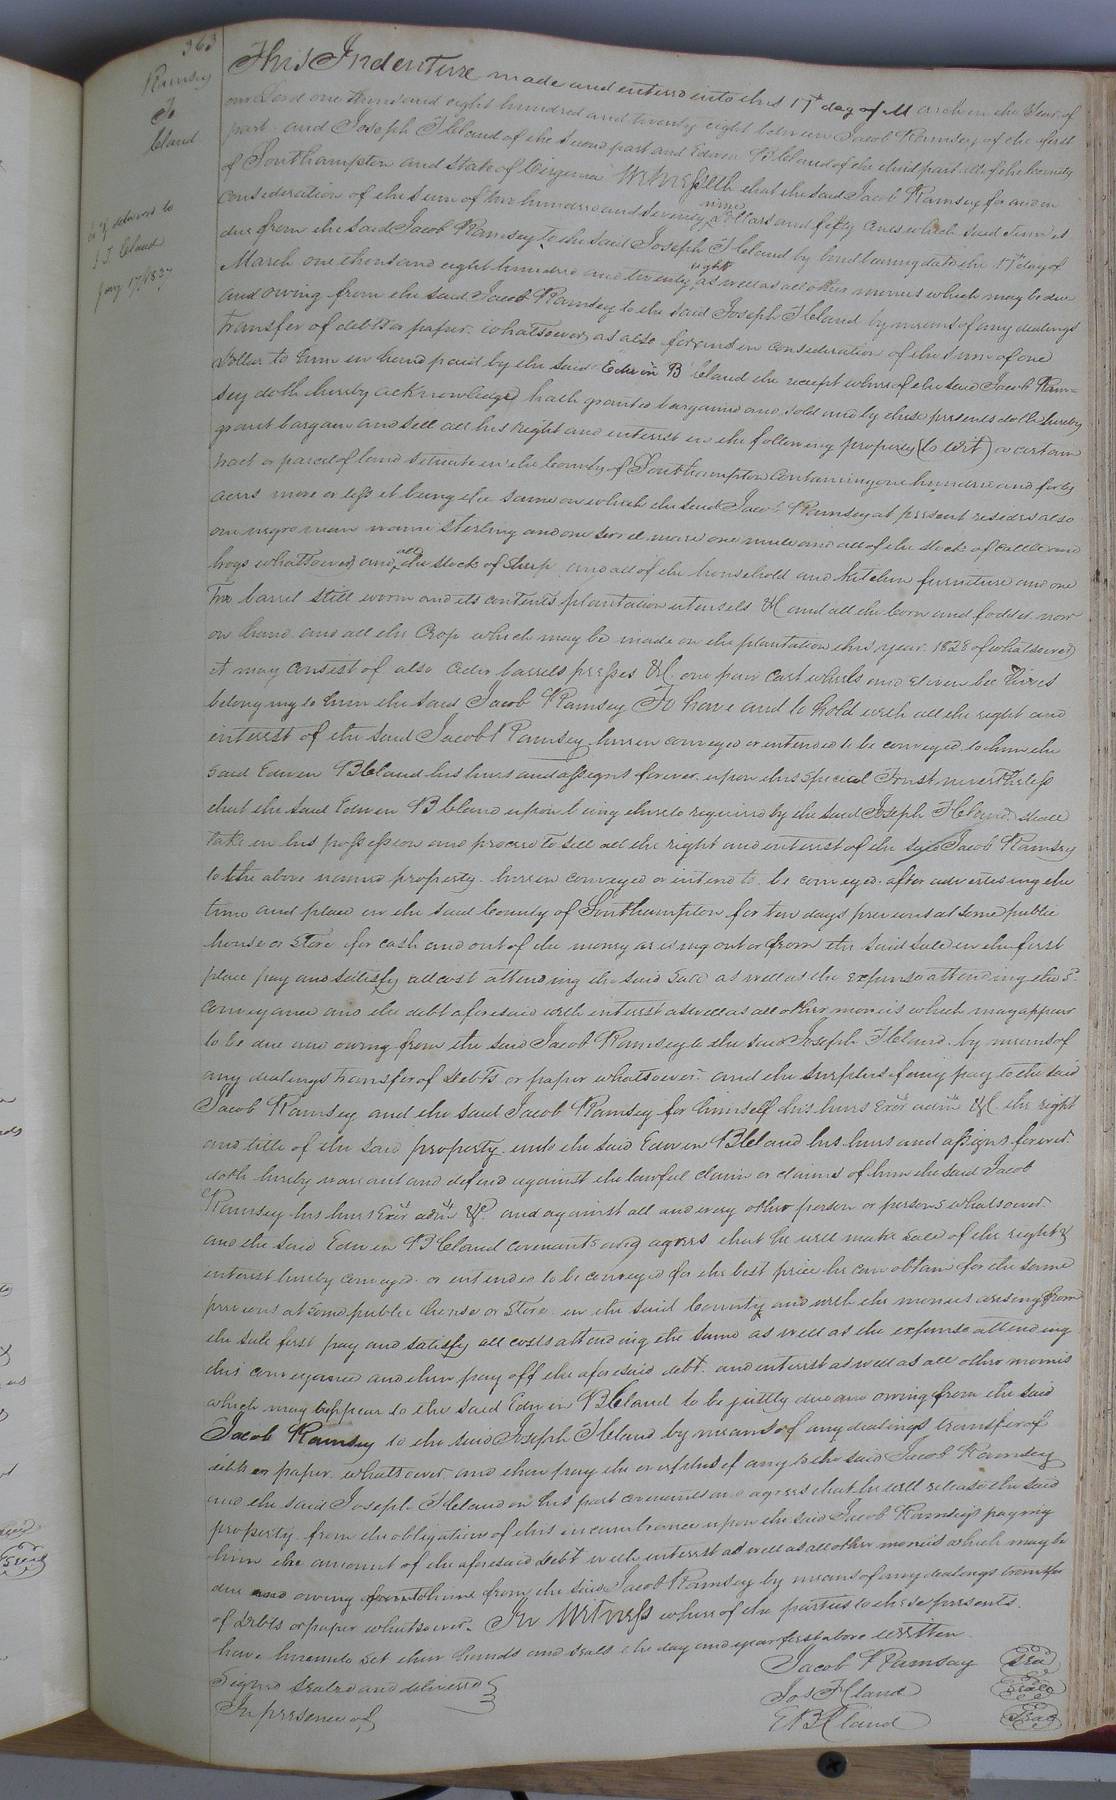 363
Ramsey
To
Claud
delivered to
J T Claud
Jany 17 1837
This Indenture made and entered into this 17th day of March in the year of
our Lord one thousand eight hundred and twenty eight between Jacob Ramsey of the first
part and Joseph T Claud of the second part and Edwin B Claud of the third part all of the County
of Southampton and State of Virginia Witnesseth that the said Jacob Ramsey for and in
consideration of the sum of two hundred and seventy nine Dollars and fifty cents which said sum is
due from the said Jacob Ramsey to the said Joseph T Claud by bond bearing date the 17th day of
March one thousand eight hundred and twenty eight as well as all other monies which may be due
and owing from the said Jacob Ramsey to the said Joseph T Claud by means of any dealings
transfer of debts or paper whatsoever, as also for and in consideration of the sum of one
Dollar to him in hand paid by the said Edwin B Claud the receipt whereof the said Jacob Ram=
sey doth hereby acknowledged hath granted bargained and sold and by these presents doth hereby
grant bargain and sell all his right and interest in the following property (to wit) a certain
tract or parcel of land situate in the County of Southampton containing one hundred and forty
acres more or less it being the same on which the said Jacob Ramsey at present resides also
one negro man named Sterling and one sorrel mare one mule and all of the stock of cattle and
hogs whatsoever, and all the stock of Sheep and all of the household and kitchen furniture and one
barrel still worm and its contents plantation utensels &c and all the Corn and fodder now
on hand and all the Crop which may be made on the plantation this year 1828 of whatsoever
it may consist of also Cider barrels presses &c one pair cart wheels and eleven bee hives
belonging to him the said Jacob Ramsey To have and to hold with all the right and
interest of the said Jacob Ramsey herein conveyed or intended to be conveyed to him the
said Edwin B Claud his heirs and assigns forever upon this special Trust nevertheless
that the said Edwin B Claud upon being thereto required by the said Joseph T Claud shall
take in his possession and proceed to sell all the right and interest of the said Jacob Ramsey
to the above named property herein conveyed or intend to be conveyed after advertising the
time and place in the said County of Southampton for ten days previous at some public
house or Store for cash and out of the money arising out or from the said sale in the first
place pay and satisfy all cost attending the said sale as well as the expense attending the sd
conveyance and the debt aforesaid with interest as well as all other monies which may appear
to be due and owing from the said Jacob Ramsey to the said Joseph T Claud by means of
any dealings transfer of debts or paper whatsoever and the surplus if any pay to the said
Jacob Ramsey and the said Jacob Ramsey for himself his heirs Exor admr &c the right
and title of the said property unto the said Edwin B Claud his heirs and assigns forever
doth hereby warrant and defend against the lawful claim or claims of him the said Jacob
Ramsey his heirs Exor admr &c and against all and every other person or persons whatsoever
and the said Edwin B Claud covenants and agrees that he will make sale of the right &
interest hereby conveyed or intended to be conveyed for the best price he can obtain for the same
previous at some public house or Store in the said County and with the monies arising from
the sale first pay and satisfy all costs attending the same as well as the expense attending
this conveyance and then pay off the aforesaid debt and interest as well as all other monies
which may appear to the said Edwin B Claud to be justly due and owing from the said
Jacob Ramsey to the said Joseph T Claud by means of any dealings transfer of
debts or paper whatsoever and then pay the overplus if any to the said Jacob Ramsey
and the said Joseph T Claud on his part covenants and agrees that he will release the said
property from the obligation of this incumbrance upon the said Jacob Ramsey's paying
him the amount of the aforesaid debt with interest as well as all other monies which may be
due and owing from the said Jacob Ramsey by means of any dealings transfer
of debts or paper whatsoever. In Witness whereof the parties to these presents
have hereunto set their hands and seals the day and year first above written
Signed Sealed and delivered
In presence of
Jacob Ramsay Seal
Jos T Claud Seal
E B Claud Seal